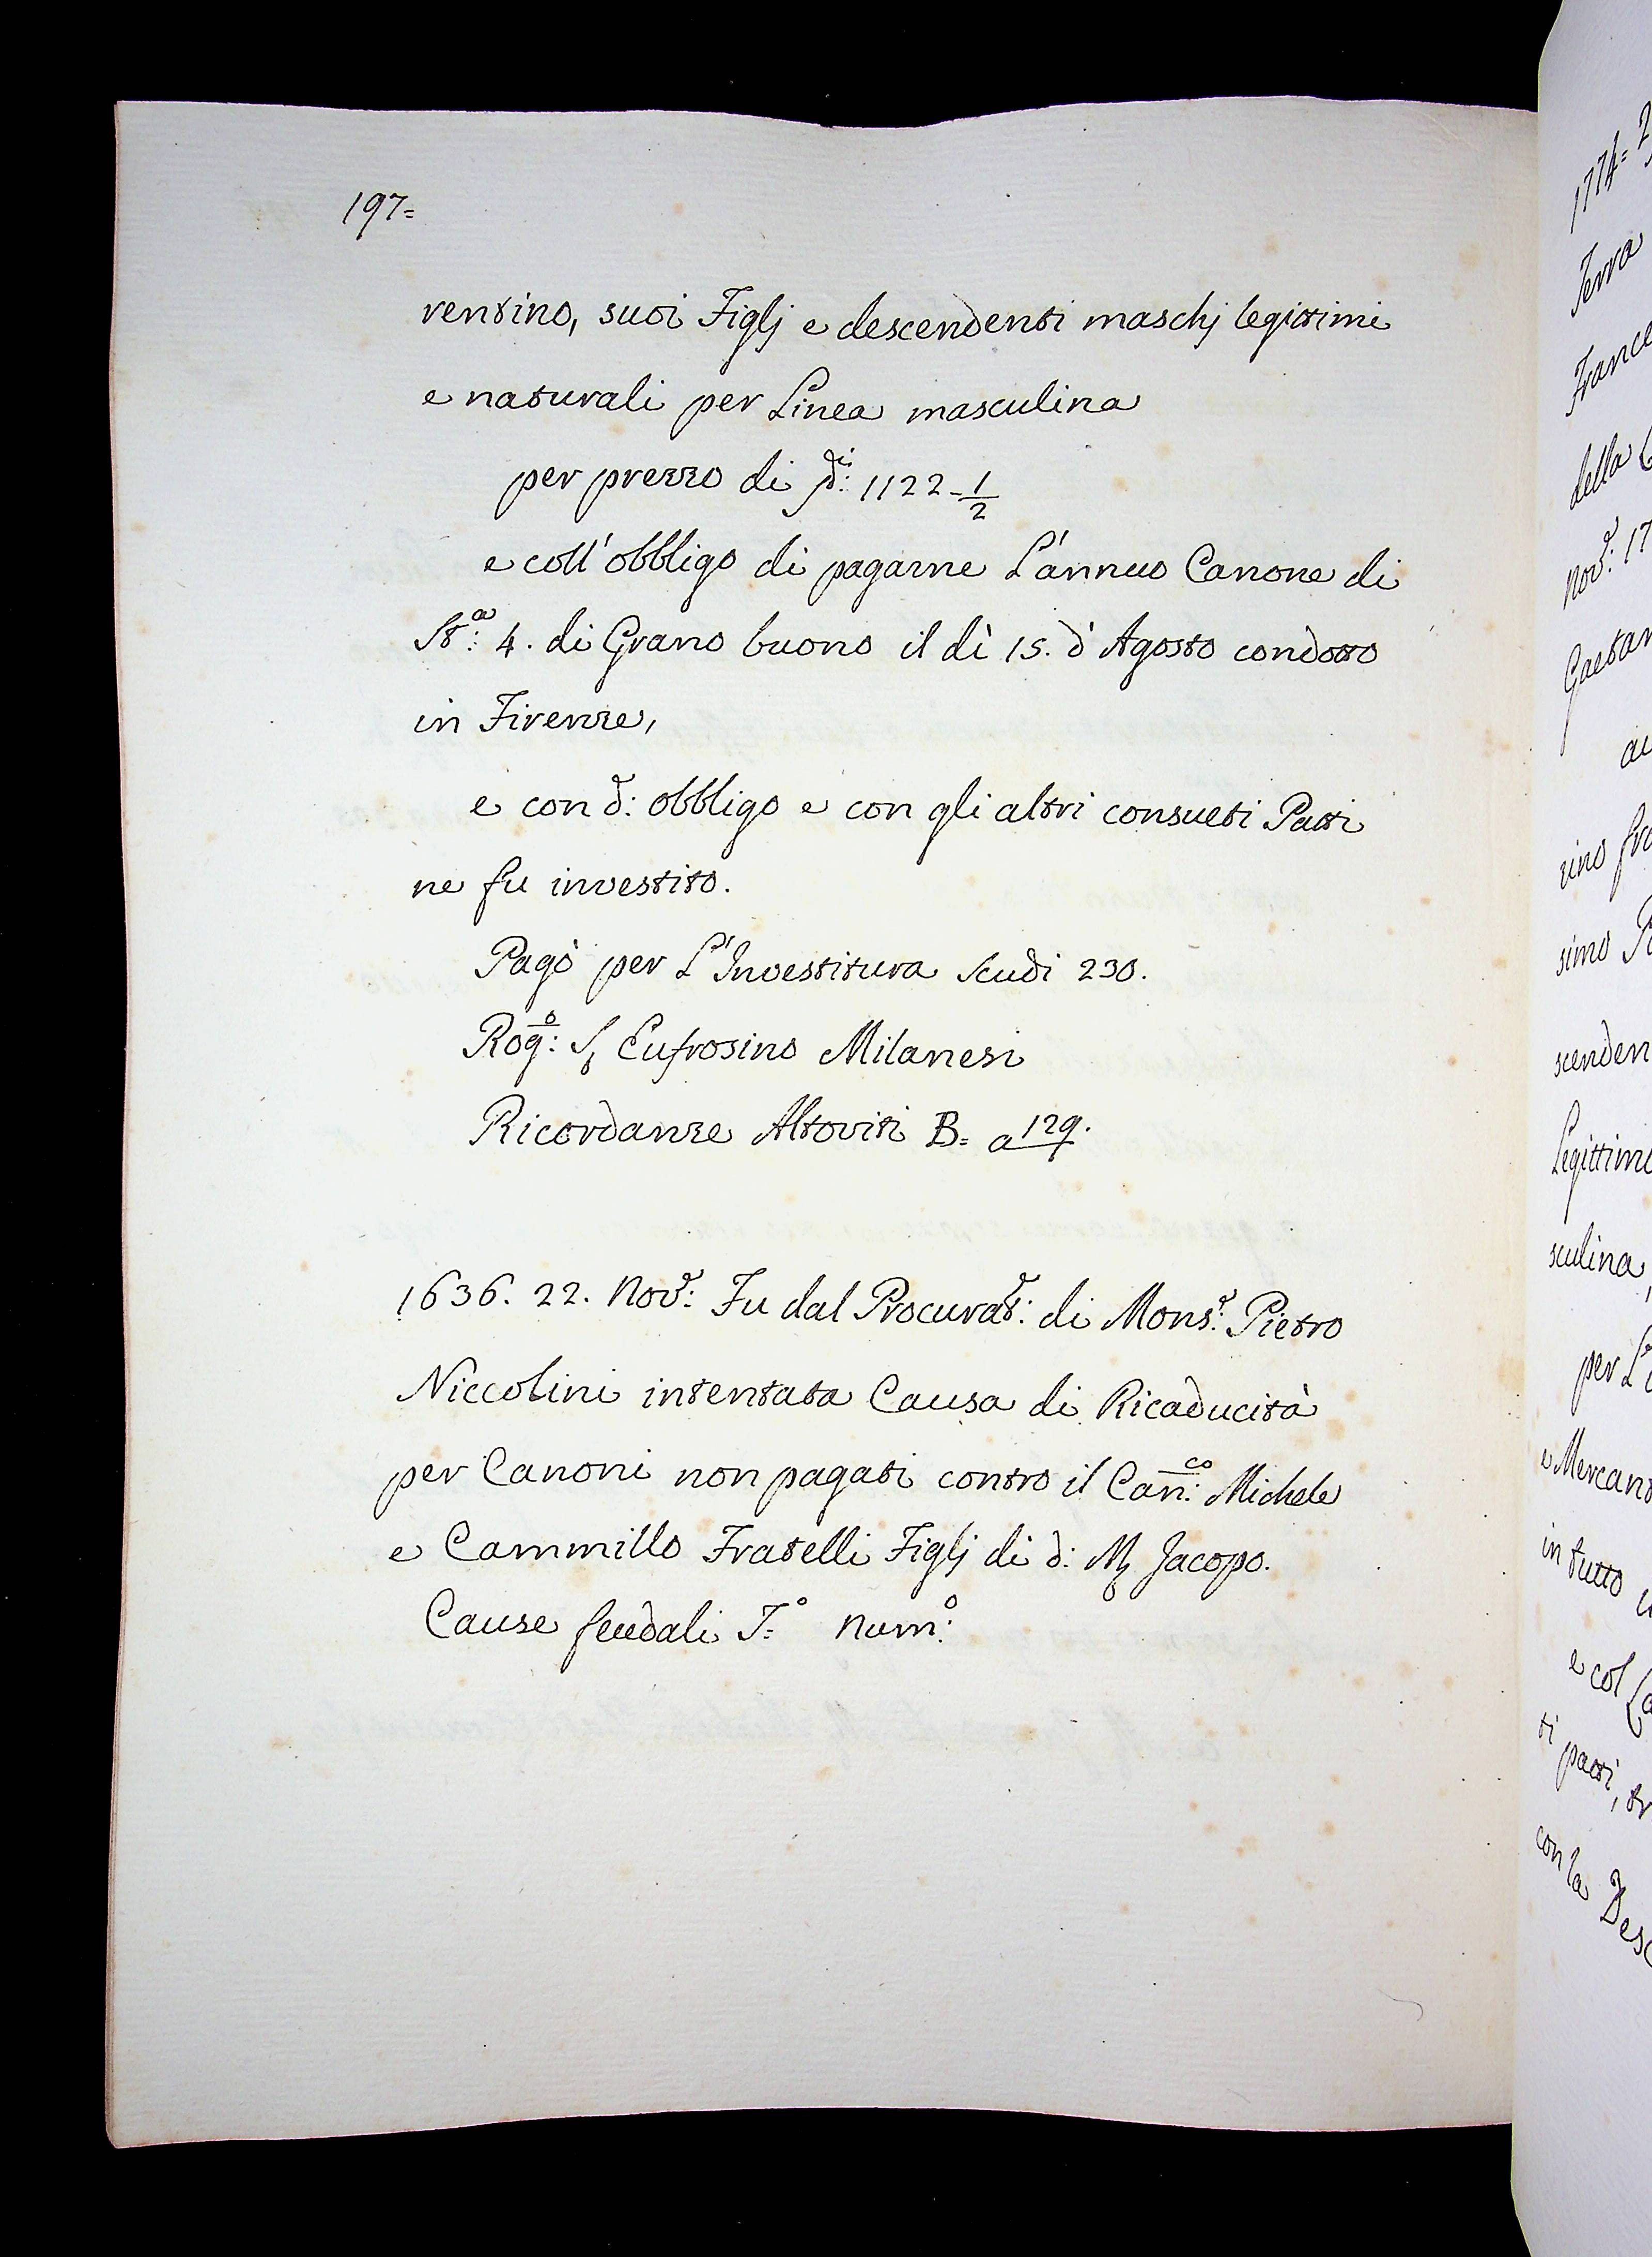 197=
rentino, suoi Figlj e descendenti maschj legittimi
e naturali per Linea masculina
per prezzo di 1122-1/2
e coll'obbligo di pagarne L'annuo Canone di
St.a: 4. di Grano buono il dì 15. d'Agosto condotto
in Firenze,
e con d: obbligo e con gli altri consueti Patti
ne fu investito.
Pagò per L'Investitura Scudi 230.
Rog:o S Eufrosino Milanesi
Ricordanze Altoviti B= a 129.
1636. 22. Nov: Fu dal Procurat: di Mons: Pietro
Niccolini intentata Causa di Ricaducità
per Canoni non pagati contro il Can:co Michele
e Cammillo Fratelli Figlj di d: M Jacopo.
Cause feudali T=o Num:o
1774=
Terra
France
della
Nov: 17
Gaetan
simo
scenden
Legittim
sculina,
per L'
e Mercant
in tutto
e col
ti patti,
con la Desc